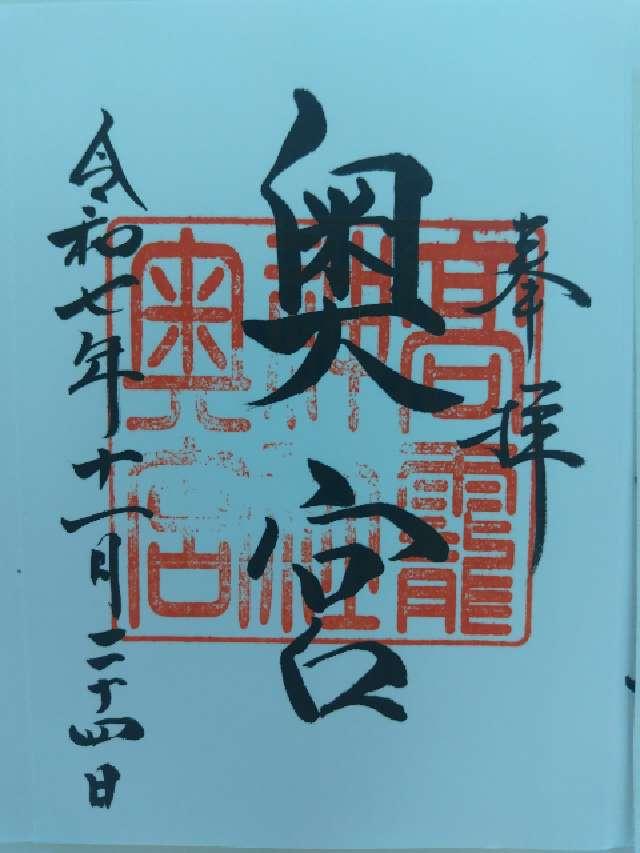 奉拝
奥宮
令和七年十一月二十四日
高龗
神社
奥宮